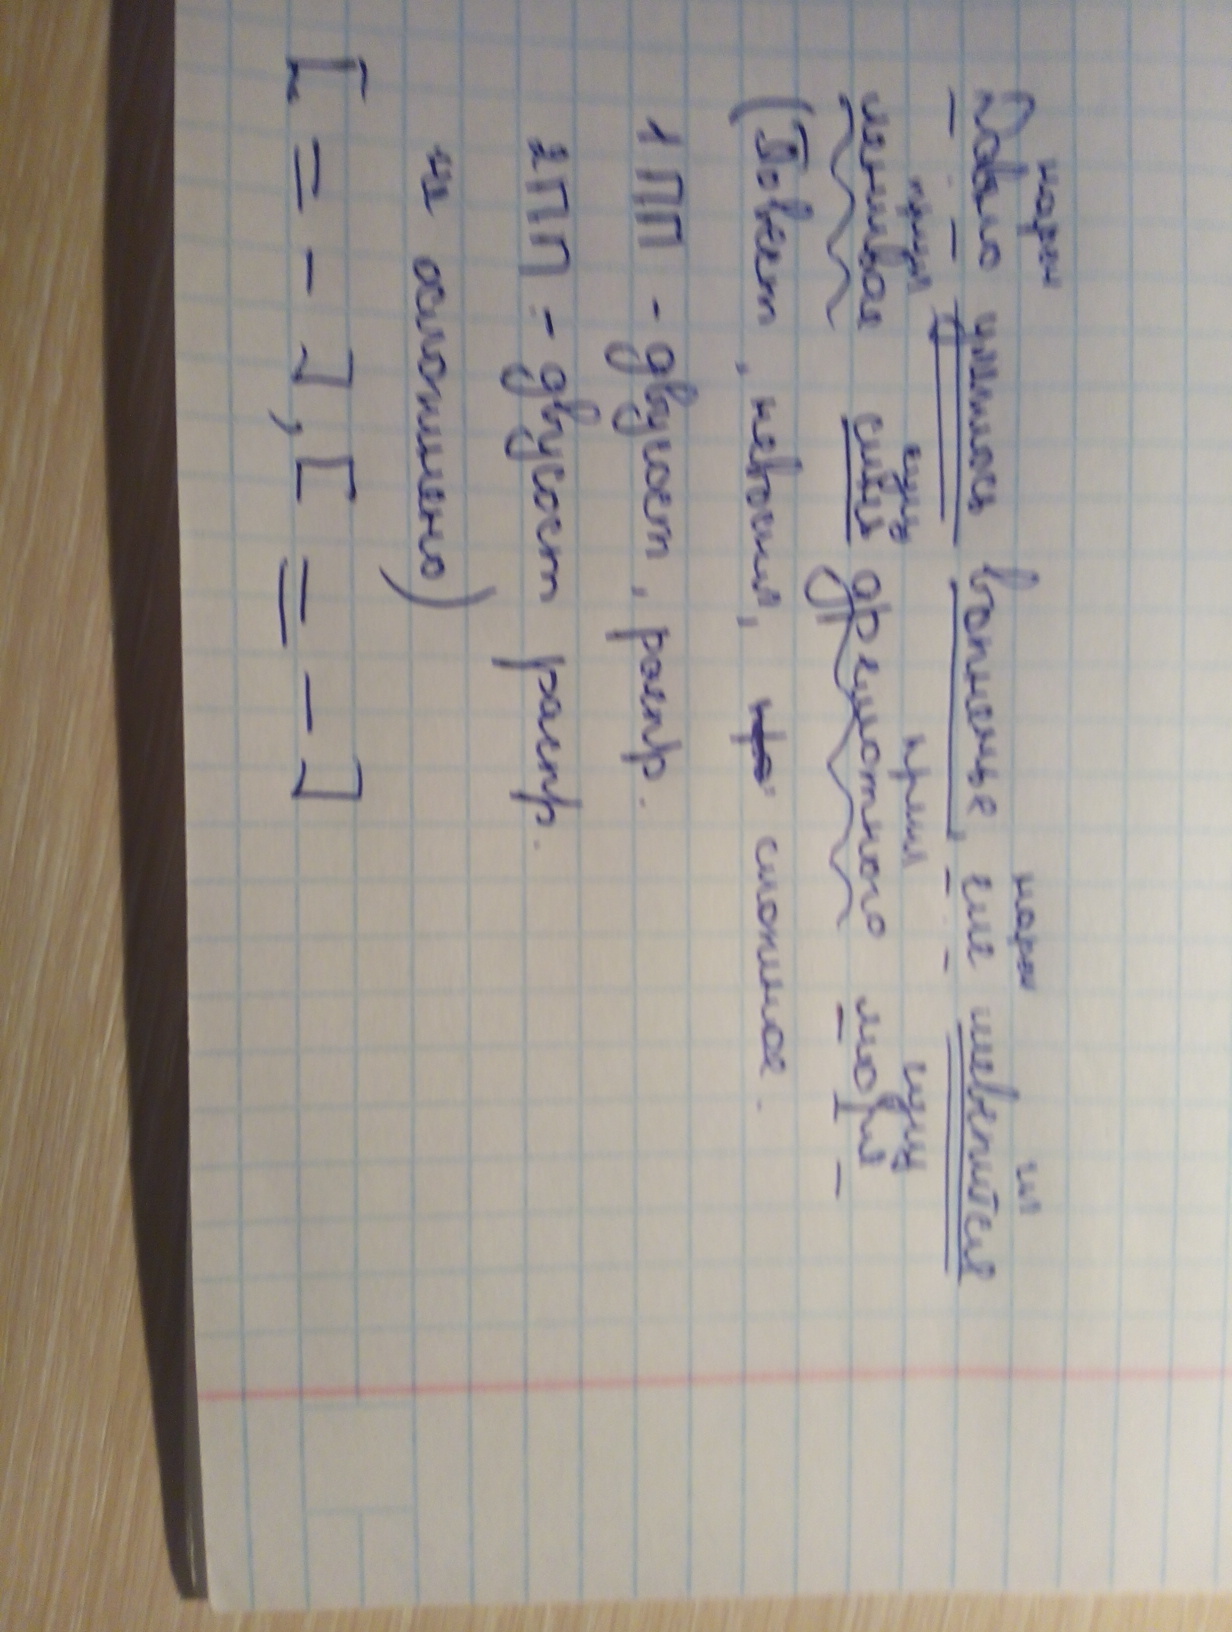 нареч нареч гл
Давно унялось волненье, еле шевелится
прил сущ прил сущ
ленивая сила дремотного моря
(Повест, невоскл, сложное.
1 ПП - двусост, распр.
2 ПП - двусост распр.
н осложнено)
[= - ], [ = - ]